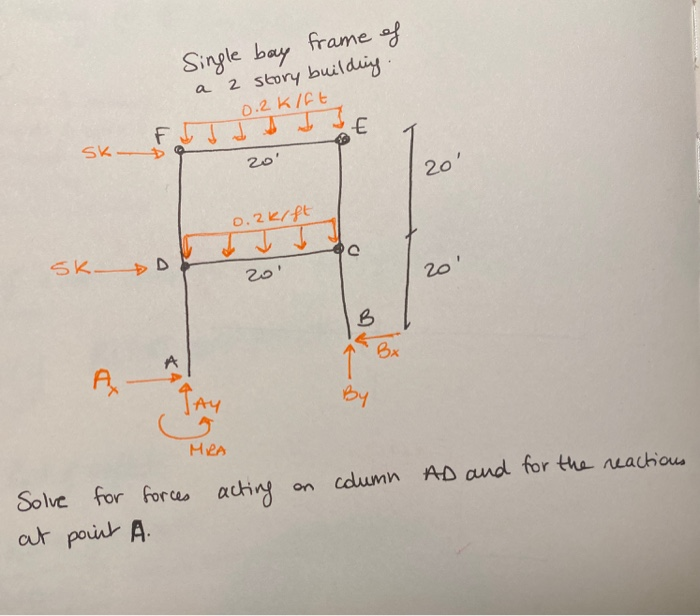 Single bay frame of
a 2 story building.
0.2 K/ft
F
E
5K
20'
20'
0.2K/ft
5K
D
C
20'
20'
B
Bx
A
Ax
Ay
By
MRA
Solve for forces acting on column AD and for the reactions
at point A.